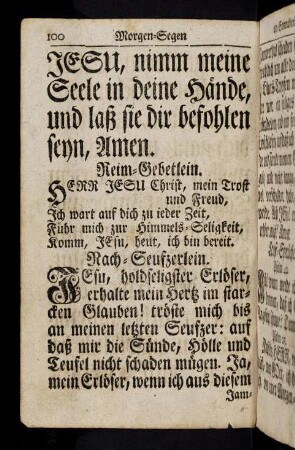 100 Morgen-Segen
JESU, nimm meine
Seele in deine Hände,
und laß sie dir befohlen
seyn, Amen.
Reim-Gebetlein.
HERR JESU Christ, mein Trost
und Freud,
Ich wart auf dich zu ieder Zeit,
Führ mich zur Himmels-Seligkeit,
Komm, JEsu, heut, ich bin bereit.
Nach-Seufzerlein.
JEsu, holdseligster Erlöser,
erhalte mein Hertz im star-
cken Glauben! tröste mich bis
an meinen letzten Seufzer: auf
daß mir die Sünde, Hölle und
Teufel nicht schaden mügen. Ja,
mein Erlöser, wenn ich aus diesem
Jam-